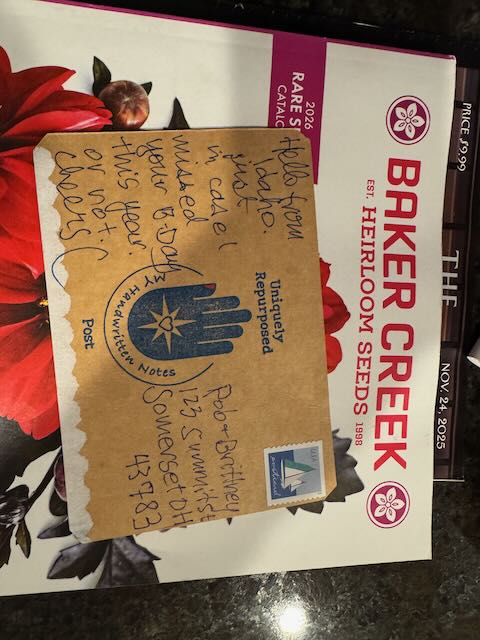 PRICE $9.99
THE
NOV. 24, 2025
2026
RARE S
CATALO
BAKER CREEK
EST. HEIRLOOM SEEDS 1998
Hello from
Idaho.
Just
in case I
missed
your B-Day
this year.
or not.
cheers!
Uniquely
Repurposed
BY Handwritten Notes
Post
USA
postcard
Rob + Brittney
123 Summit St
Somerset OH
43783